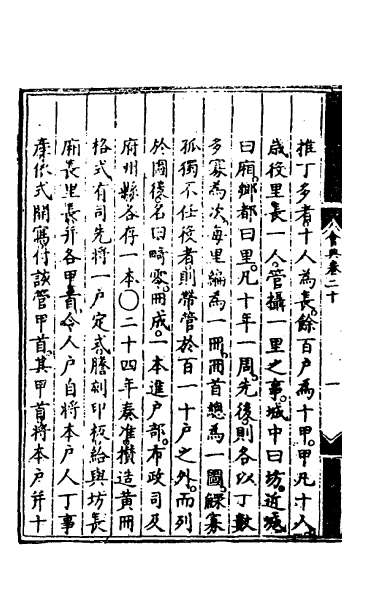 會典卷二十
一
推丁多者十人為長。餘百户為十甲。甲凡十人。
歲役里長一人。管攝一里之事。城中曰坊。近城
曰廂。鄉都曰里。凡十年一周。先後則各以丁數
多寡為次。每里編為一冊。冊首總為一圖。鰥寡
孤獨不任役者則帶管於百一十户之外。而列
於圖後。名曰畸零。冊成。一本進户部。布政司及
府州縣各存一本〇二十四年奏准。攢造黃冊
格式有司先將一户定式謄刻印板給與坊長
廂長里長并各甲首。令人户自將本户人丁事
產依式開寫付該管甲首。其甲首將本户并十